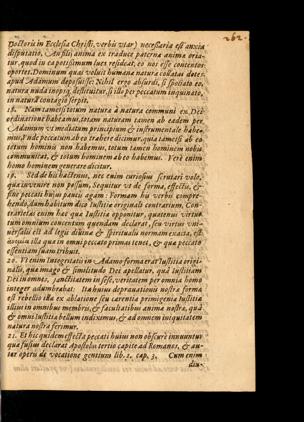 262.
Doctoris in Ecclesia Christi, verbis viæ) necessaria est anxia
disputatio, An filij anima ex traduce paternæ animæ oria-
tur, quod in ea potissimum lues resideat, eo nos esse contentos
oportet. Dominum quas voluit humanæ natura collatas dotes,
apud Adamum deposuisse: Nihil ergo absurdi, si spoliato eo,
natura nuda inopsque destituitur, si illo per peccatum inquinato,
in naturā contagio serpit.
18. Nam tametsi totum natura à natura communi ex Dei
ordinatione habeamus, etiam naturam tamen ab eadem per
Adamum vt mediatum principium & instrumentale habe-
mus, Unde peccatum ab eo trahere dicimur, quia tametsi ab eo
totum hominis non habemus, totum tamen hominem nobis
communicat, & totum hominem ab eo habemus. Verè enim
homo hominem generare dicitur.
19. Sed de his hactenus, nec enim curiosius scrutari volo,
quæ invenire non possum, Sequitur vt de forma, effectu, &
fine peccati huius paucis agam: Formam his verbis compre-
hendo, dum habitum dico Iustitiæ originali contrarium, Con-
trarietas enim hæc quæ Iustitiæ opponitur, quatenus virtu-
tum omnium concentum quendam declarat, seu virtus uni-
versalis est ad legis divinæ & spiritualis normam exacta, est
ἀνομία illa quæ in omni peccato primas tenet, & quæ peccato
essentiam suam tribuit.
20. Vt enim Integritatis in Adamo forma erat Iustitia origi-
nalis, quæ imago & similitudo Dei apellatur, quā Iustitiam
Dei in omnes, sanctitatem in sese, veritatem per omnia homo
integer adumbrabat. Ita huius depravationis nostræ forma
est rebellio illa ex ablatione seu carentia primigenia Iustitiæ
illius in omnibus membris, & facultatibus animæ nostræ, quâ
& omnis Iustitiæ bellum indiximus, & ad omnem iniquitatem
natura nostra ferimur.
21. Et hic quidem effecta peccati huius non obscurè innuuntur
quæ fusius declarat Apostolus tertio capite ad Romanos, & au-
tor operis de vocatione gentium lib. 2. cap. 3. Cum enim
diu-